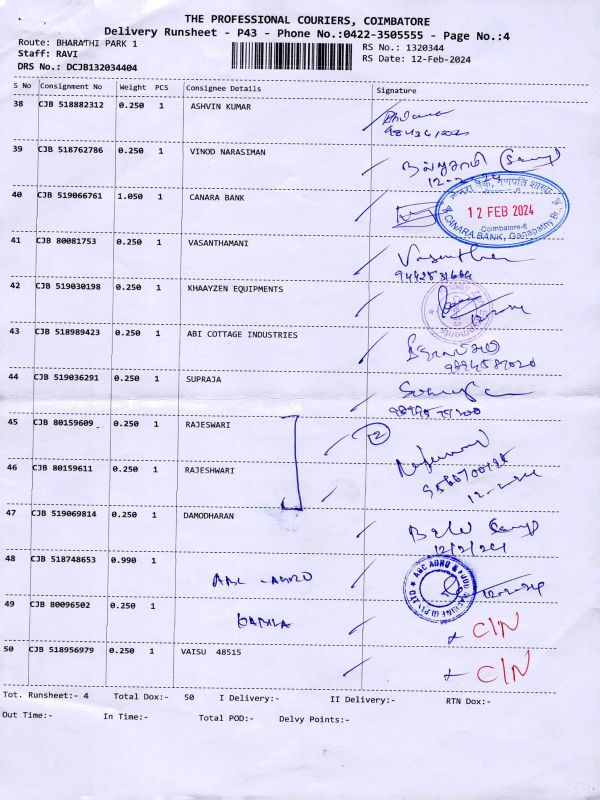 THE PROFESSIONAL COURIERS, COIMBATORE
Delivery Runsheet - P43 - Phone No.:0422-3505555 - Page No.:4
Route: BHARATHI PARK 1 RS No.: 1320344
Staff: RAVI RS Date: 12-Feb-2024
DRS No.: DCJB132034404
S No Consignment No Weight PCS Consignee Details Signature
38 CJB 518882312 0.250 1 ASHVIN KUMAR
39 CJB 518762786 0.250 1 VINOD NARASIMAN
40 CJB 519066761 1.050 1 CANARA BANK
12 FEB 2024
Coimbatore-6
CANARA BANK, Ganapathy Br.,
41 CJB 80081753 0.250 1 VASANTHAMANI
42 CJB 519030198 0.250 1 KHAAYZEN EQUIPMENTS
43 CJB 518989423 0.250 1 ABI COTTAGE INDUSTRIES
44 CJB 519036291 0.250 1 SUPRAJA
45 CJB 80159609 0.250 1 RAJESWARI
46 CJB 80159611 0.250 1 RAJESHWARI
47 CJB 519069814 0.250 1 DAMODHARAN
12/2/24
48 CJB 518748653 0.990 1
49 CJB 80096502 0.250 1 C/N
50 CJB 518956979 0.250 1 VAISU 48515 C/N
Tot. Runsheet:- 4 Total Dox:- 50 I Delivery:- II Delivery:- RTN Dox:-
Out Time:- In Time:- Total POD:- Delvy Points:-